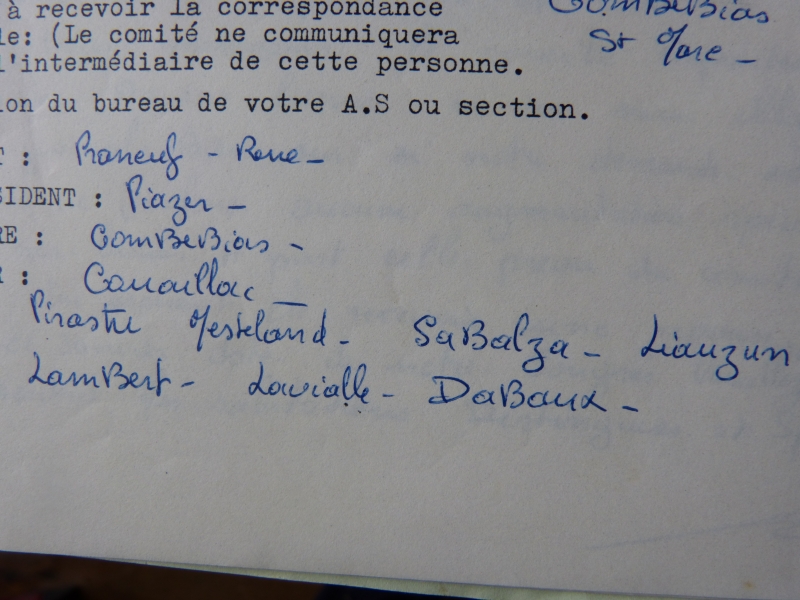 à recevoir la correspondance
GomBeBias
le: (Le comité ne communiquera
St Mare -
l'intermédiaire de cette personne.
ion du bureau de votre A.S ou section.
T : - Rene -
SIDENT : Piazer -
RE : GomBeBias -
R : Canaillac -
Pirastu Mesteland - SaBalza - Liauzun
LamBert - Lavialle - DaBaux -